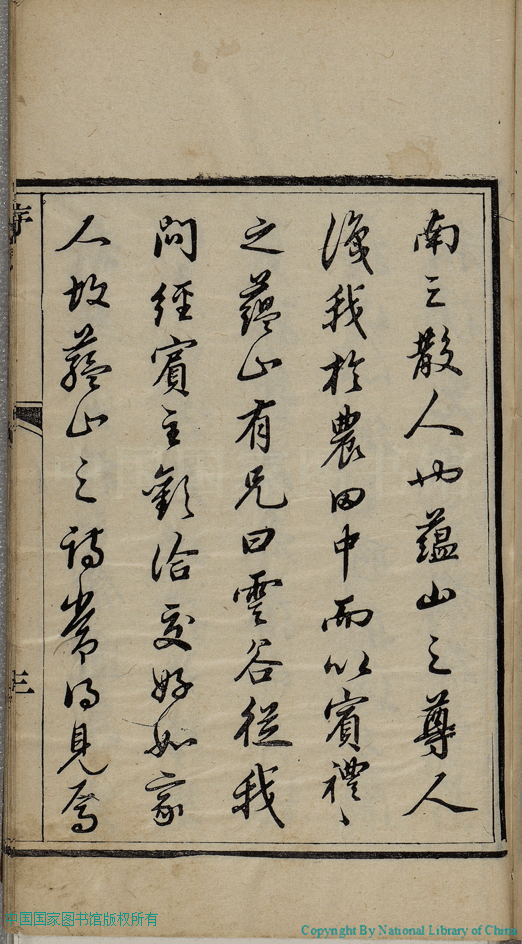 南之散人也蘊山之尊人
識我於農田中而以賓禮〻
之蘊山有兄曰雲谷從我
問經賓主歡洽交好如家
人故蘊山之詩常得見焉
序
三
中国国家图书馆版权所有
Copyright By National Library of China